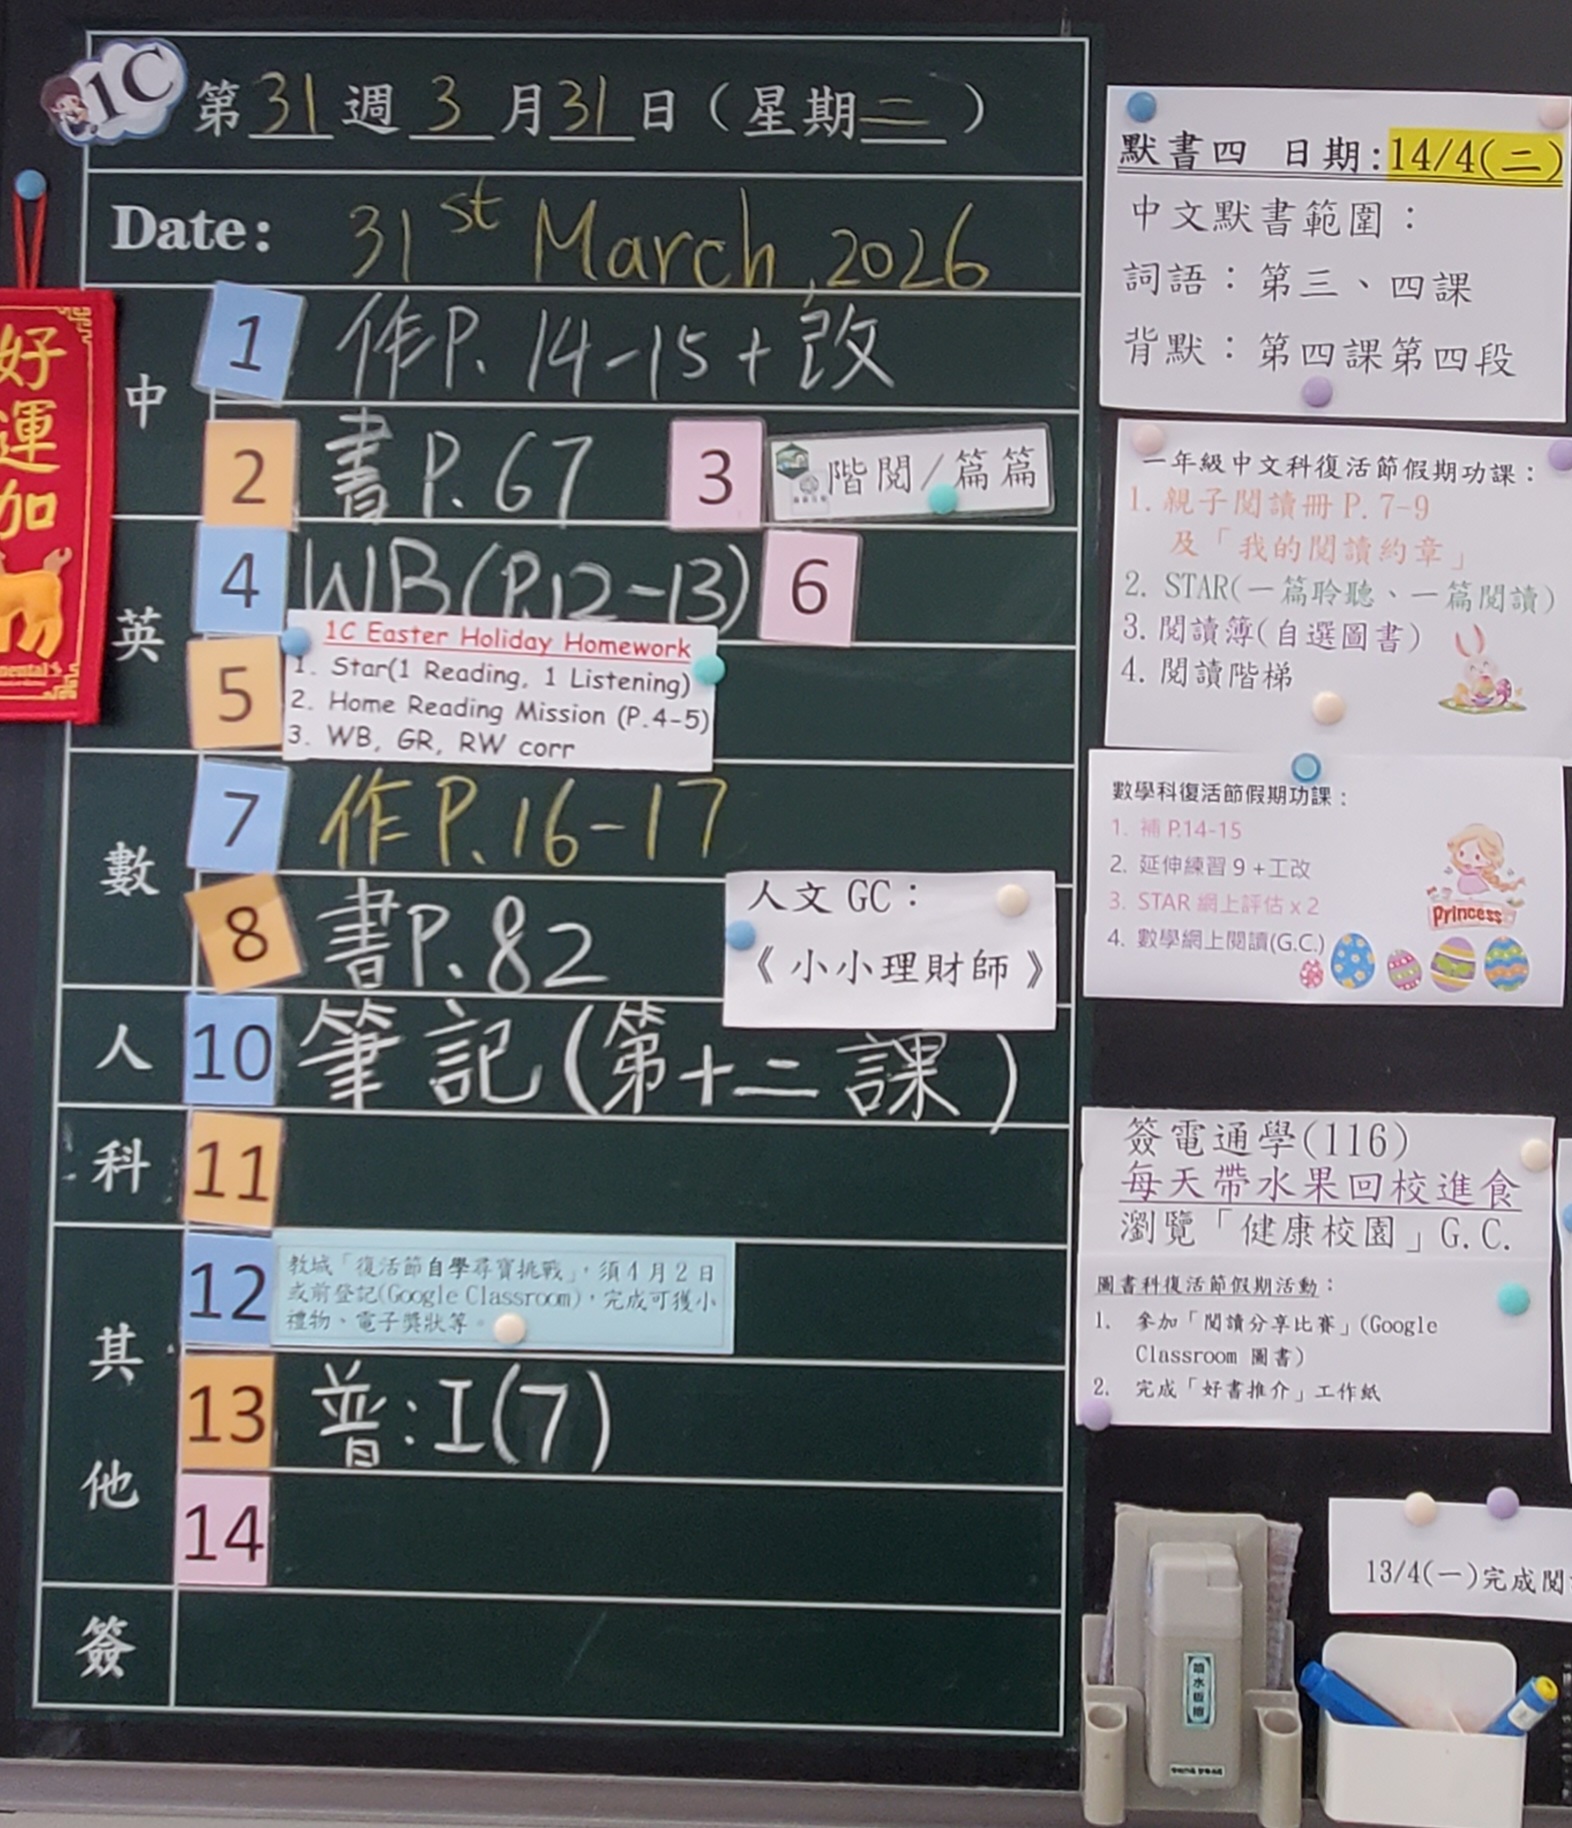 1C
第31週3月31日（星期二）
Date: 31st March, 2026
中
1 作P. 14-15+改
2 書P. 67 3 階閱/篇篇
英
4 WB(P.12-13) 6
5
1C Easter Holiday Homework
1. Star(1 Reading, 1 Listening)
2. Home Reading Mission (P.4-5)
3. WB, GR, RW corr
數
7 作P.16-17
8 書P.82
人文 GC：
《小小理財師》
人
10 筆記(第十二課)
科
11
其他
12 教城「復活節自學尋寶挑戰」，須4月2日
或前登記(Google Classroom)，完成可獲小
禮物、電子獎狀等。
13 普:I(7)
14
簽
好運加
默書四 日期:14/4(二)
中文默書範圍：
詞語：第三、四課
背默：第四課第四段
一年級中文科復活節假期功課：
1. 親子閱讀冊 P.7-9
及「我的閱讀約章」
2. STAR(一篇聆聽、一篇閱讀)
3. 閱讀簿(自選圖書)
4. 閱讀階梯
數學科復活節假期功課：
1. 補 P.14-15
2. 延伸練習 9 +工改
3. STAR 網上評估 x 2
4. 數學網上閱讀(G.C.)
Princess
簽電通學(116)
每天帶水果回校進食
瀏覽「健康校園」G.C.
圖書科復活節假期活動：
1. 參加「閱讀分享比賽」(Google
Classroom 圖書)
2. 完成「好書推介」工作紙
13/4(一)完成閱